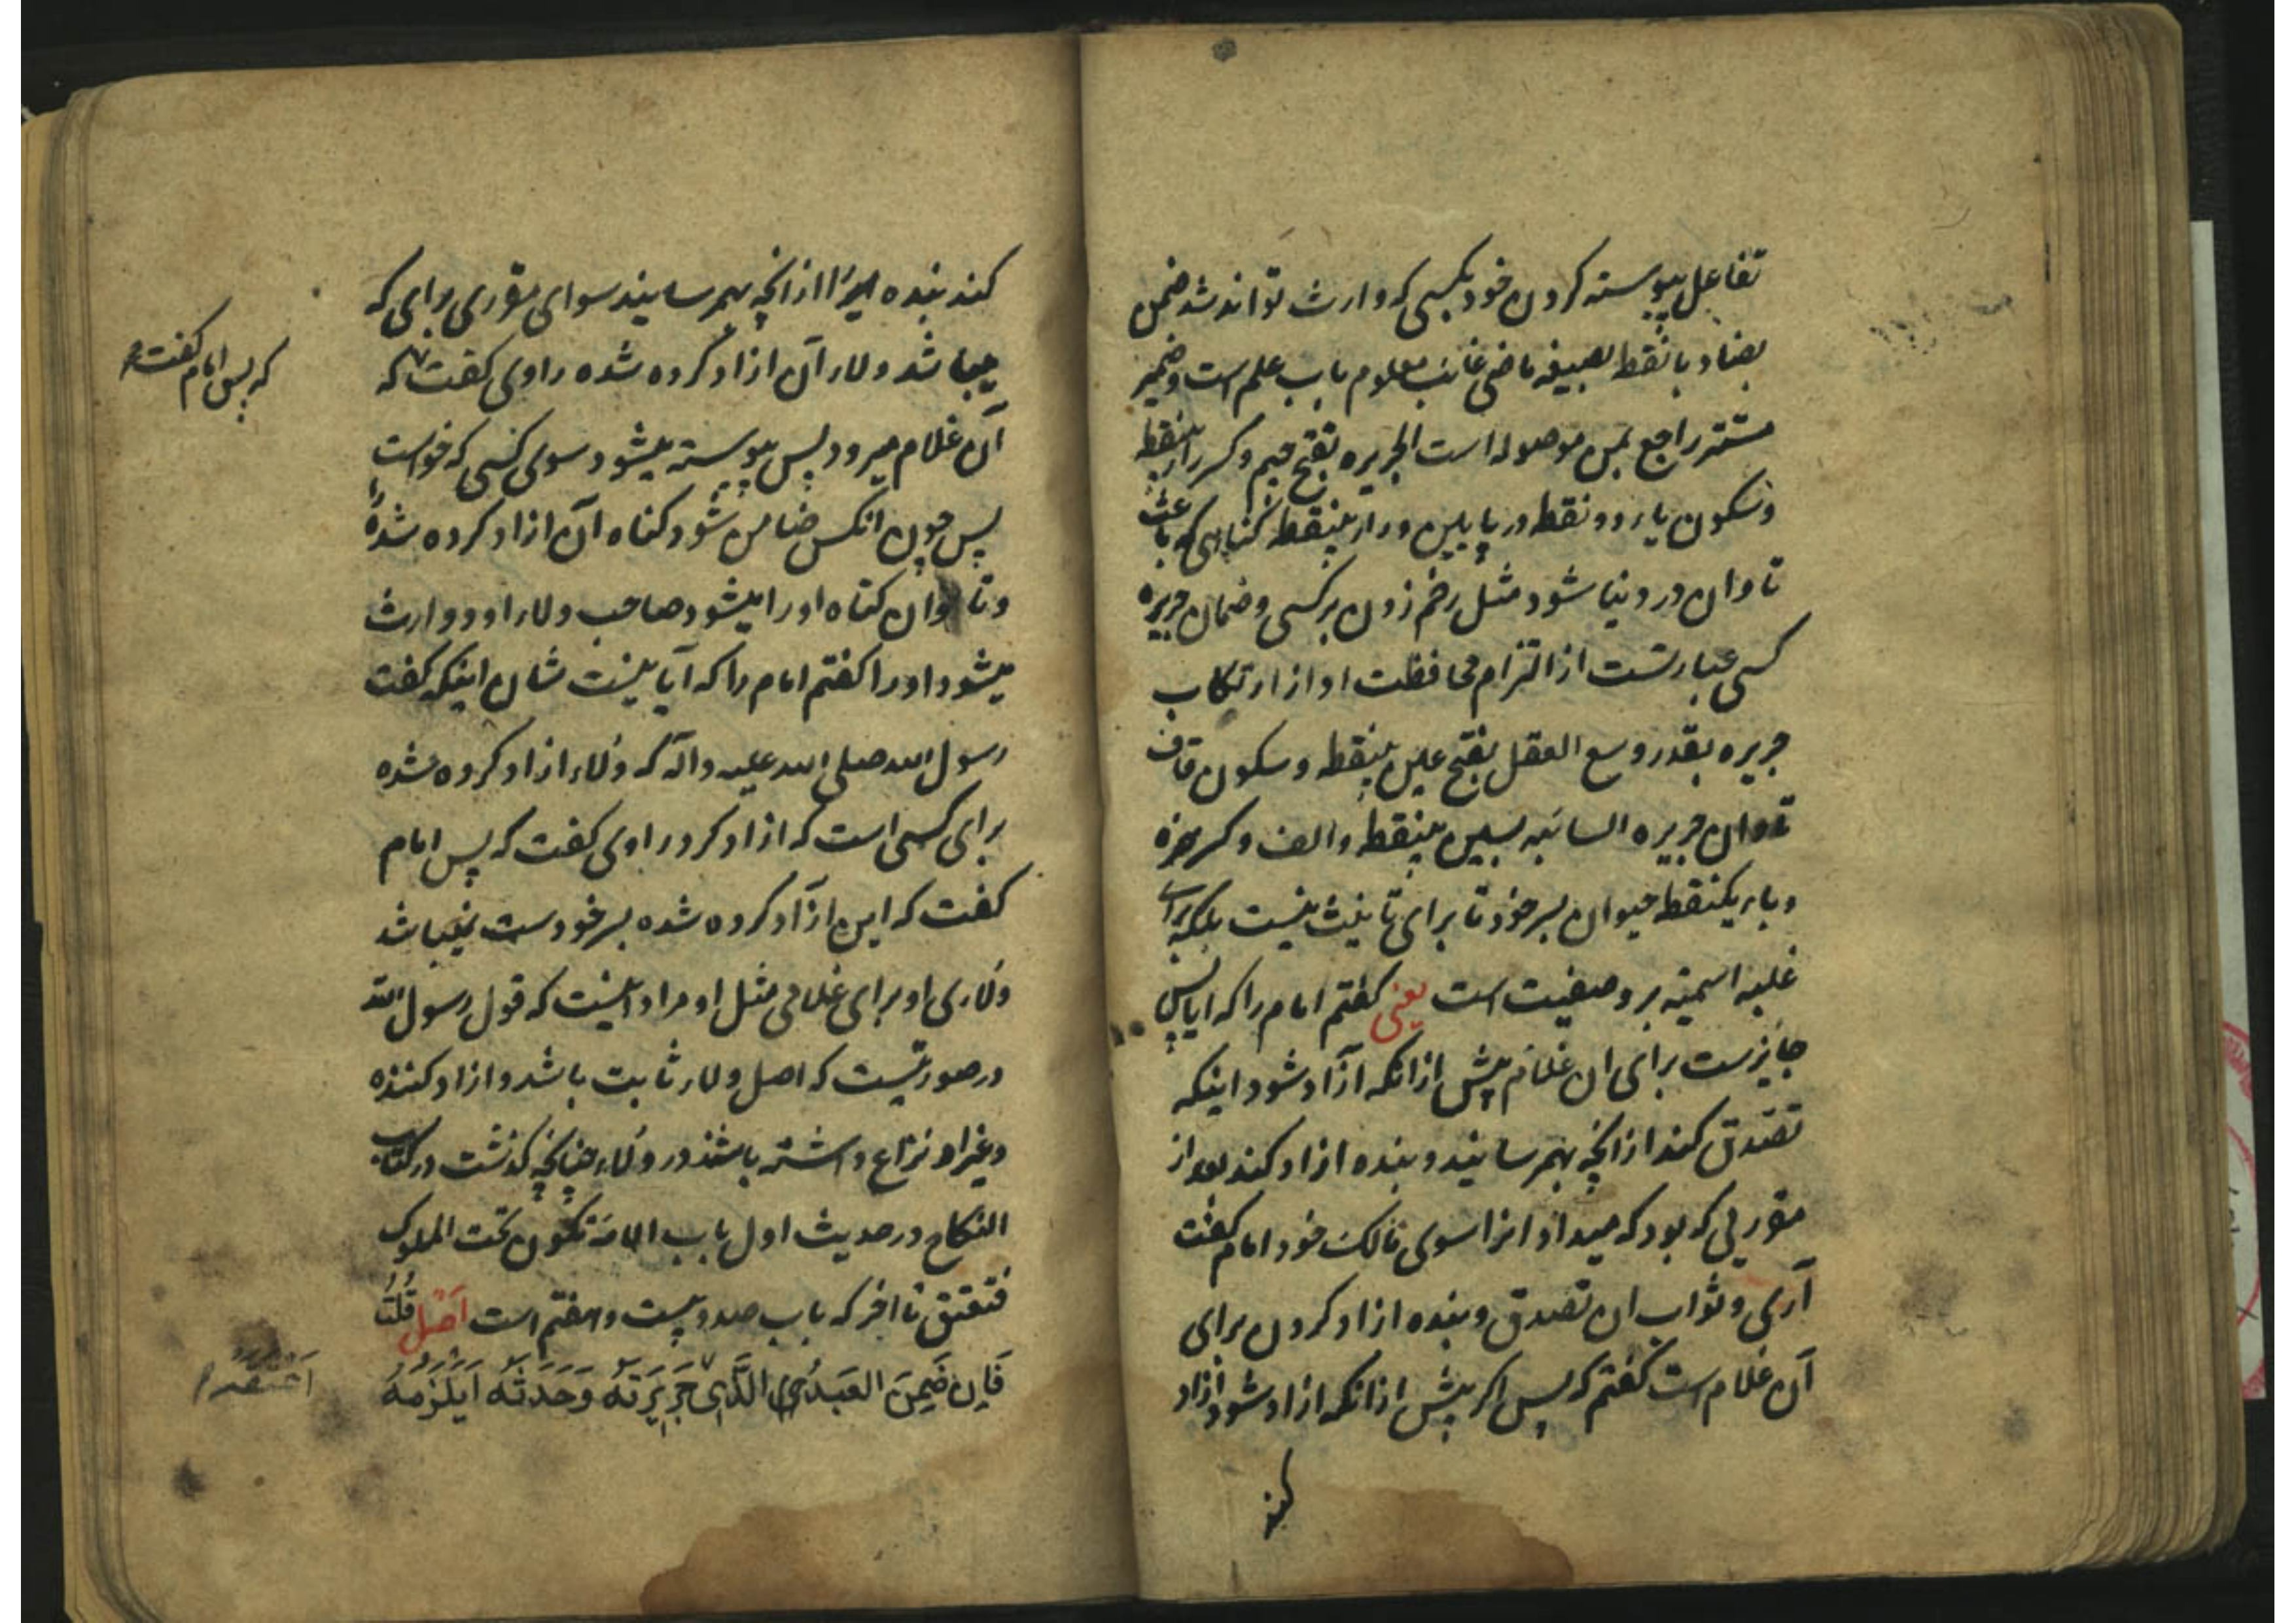 تفاعل پیوسته کردن خود بکسی که وارث تواند شد ضمن
بضاد بانقطه بصیغه ماضی غائب معلوم باب علم است و ضمیر
مستتر راجع بمن موصوله است الجریره بفتح جیم و کسر راء بینقطه
و سکون یاء دو نقطه در پایین و راء بینقطه گناهی که باعث
تاوان در دنیا شود مثل زخم زدن بر کسی و ضمان جریره
کسی عبارتست از التزام محافظت او از ارتکاب
جریره بقدر وسع العقل بفتح عین بینقطه و سکون قاف
تاوان جریره السائبه بسین بینقطه و الف و کسر همزه
و باء یکنقطه حیوان بسر خود تا برای تانیث نیست بلکه برای
غلبه اسمیته بر وصفیت است یعنی گفتم امام را که ایا پس
جایزست برای ان غلام پیش ازانکه آزاد شود اینکه
تصدق کند از انچه بهم رسانید و بنده ازاد کند بعد از
مقرریی که بود که میداد انرا سوی مالک خود امام گفت
آری و ثواب ان تصدق و بنده ازاد کردن برای
آن غلام است گفتم که پس اگر پیش ازانکه ازاد شود ازاد
کند
کند بنده را از انچه بهم رسانید سوای مقرری برای که
میباشد ولاء آن ازاد کرده شده راوی گفت که
که پس امام گفت
آن غلام میرود پس پیوسته میشود سوی کسی که خواست
پس چون انکس ضامن شود گناه آن ازاد کرده شده
و تاوان گناه او را میشود صاحب ولاء او و وارث
میشود او را گفتم امام را که آیا نیست شان اینکه گفت
رسول الله صلی الله علیه و آله که ولاء ازاد کرده شده
برای کسی است که ازاد کرد راوی گفت که پس امام
گفت که این ازاد کرده شده بسر خودست نمیباشد
ولاری او برای غلامی مثل او مراد اینست که قول رسول الله
در صورتیست که اصل ولاء ثابت باشد و ازاد کننده
و غیر او نزاع داشته باشند در ولاء چنانچه گذشت در کتاب
النکاح در حدیث اول باب الامة تکون تحت المملوک
فتعتق تا اخر که باب صد و بیست و هفتم است اصل قُلْتُ
فَاِن ضَمِنَ العَبدُ الَّذی جَرِیرَتَهُ وَحَدَثَهُ اَیَلْزَمُهُ